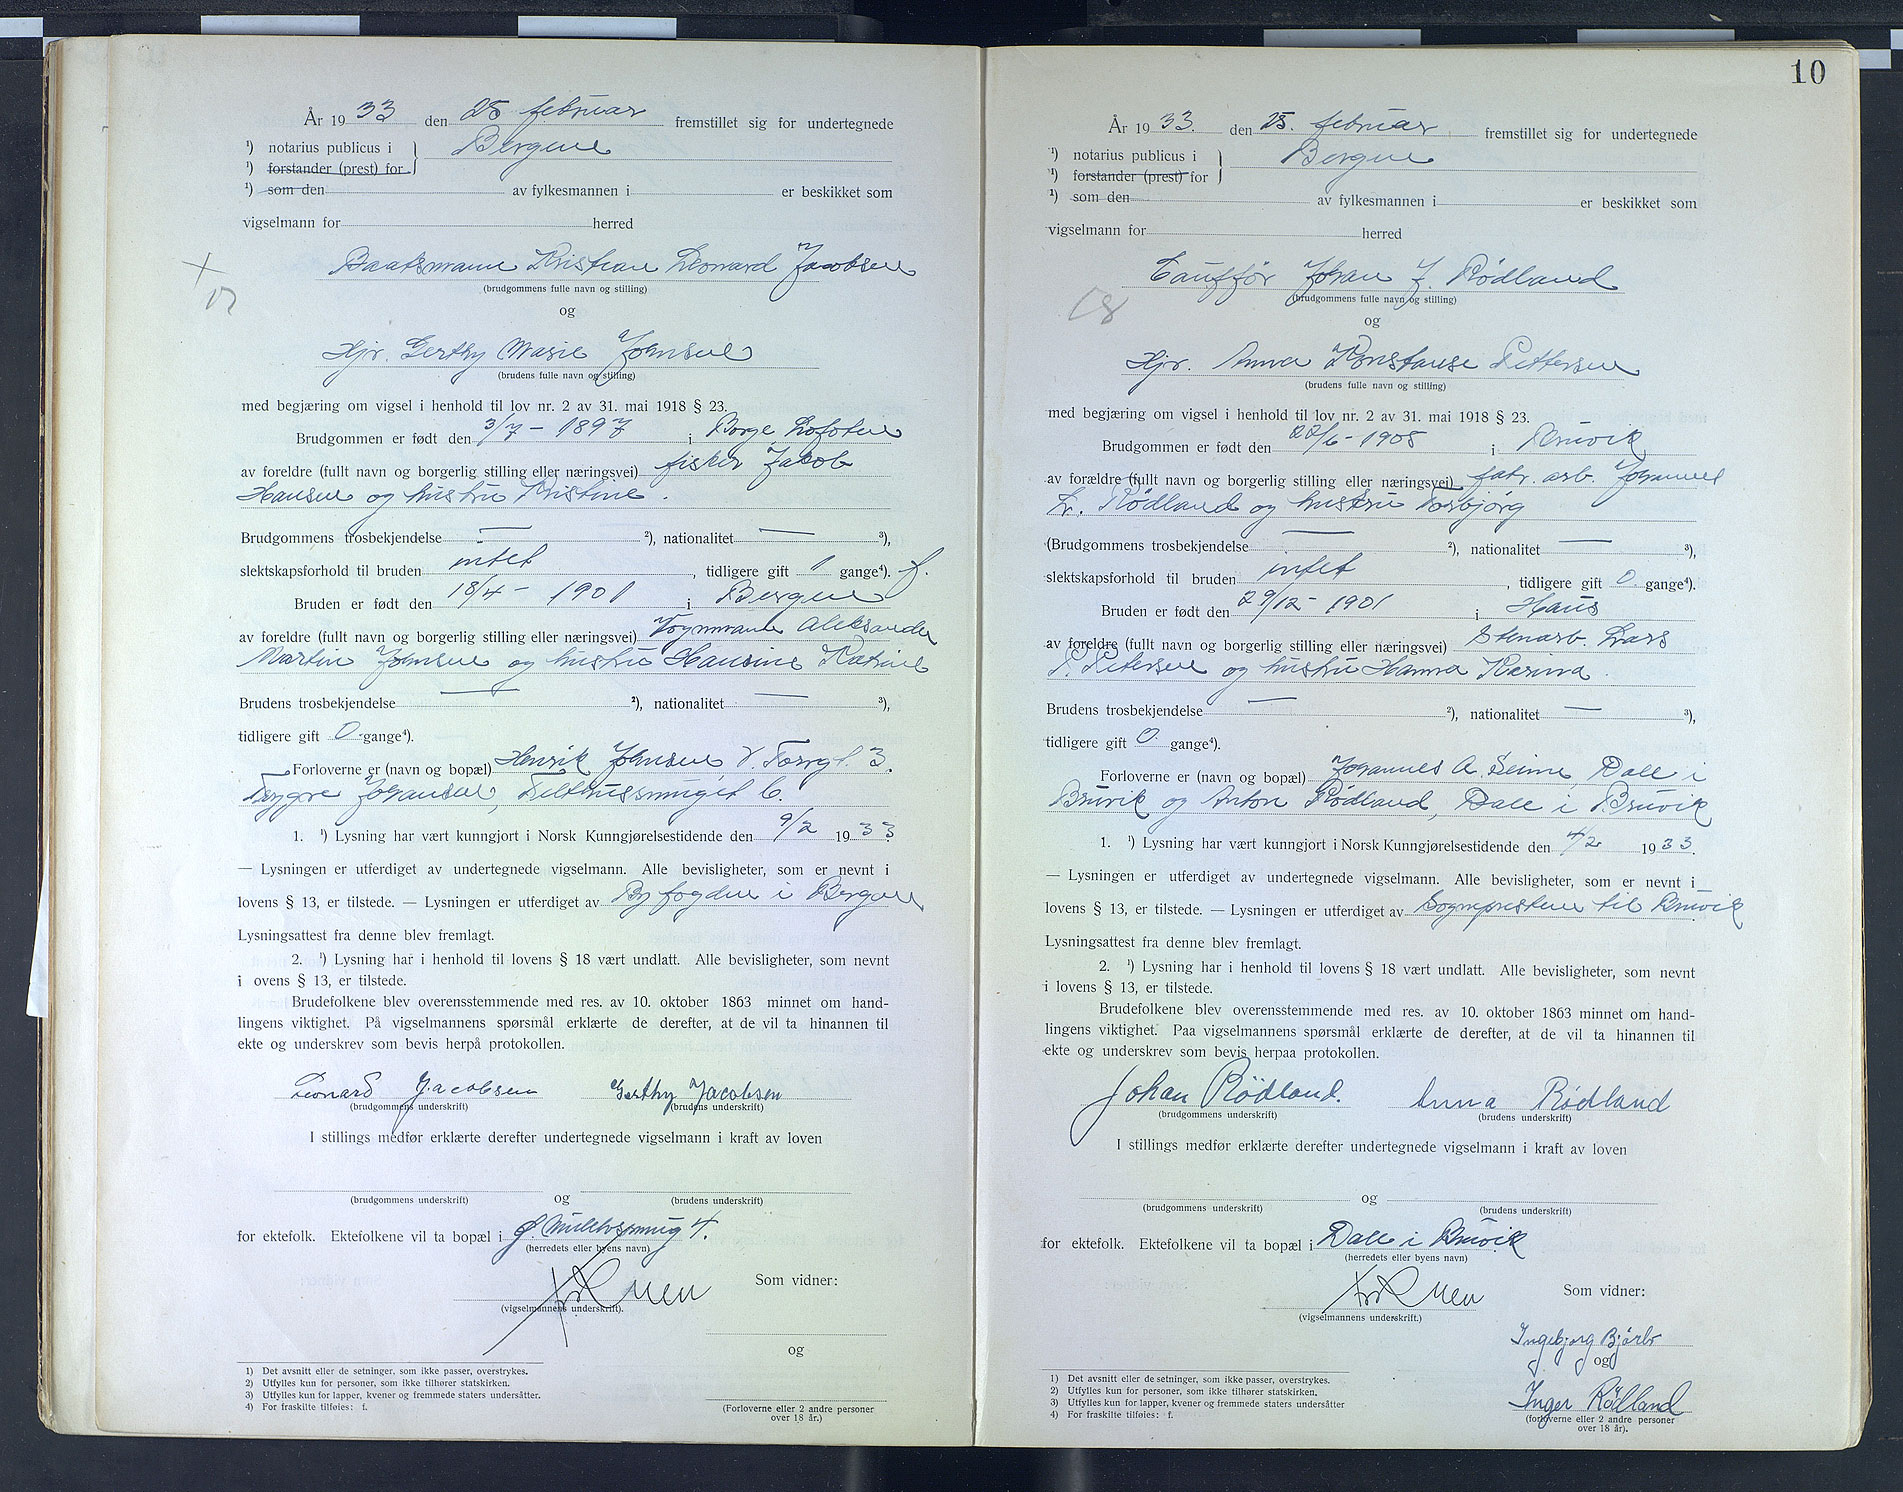 År 1933 den 25 februar fremstillet sig for undertegnede
¹) notarius publicus i } Bergen
¹) forstander (prest) for
¹) som den av fylkesmannen i er beskikket som
vigselmann for herred
+
17
Baatsmann Kristian Leonard Jacobsen
(brudgommens fulle navn og stilling)
og
Hjr. Gerthy Marie Johnsen
(brudens fulle navn og stilling)
med begjæring om vigsel i henhold til lov nr. 2 av 31. mai 1918 § 23.
Brudgommen er født den 3/7 - 1897 i Borge, Lofoten
av foreldre (fullt navn og borgerlig stilling eller næringsvei) fisker Jakob
Hansen og hustru Kristine.
Brudgommens trosbekjendelse — ²), nationalitet — ³),
slektskapsforhold til bruden intet, tidligere gift 1 gange⁴). f.
Bruden er født den 18/4 - 1901 i Bergen
av foreldre (fullt navn og borgerlig stilling eller næringsvei) Vognmand Aleksander
Martin Johnsen og hustru Hansine Katrine
Brudens trosbekjendelse — ²), nationalitet — ³),
tidligere gift 0 gange⁴).
Forloverne er (navn og bopæl) Henrik Johnsen V. Torvgt. 3.
Trygve Johansen, 6.
1. ¹) Lysning har vært kunngjort i Norsk Kunngjørelsestidende den 9/2 1933.
— Lysningen er utferdiget av undertegnede vigselmann. Alle bevisligheter, som er nevnt i
lovens § 13, er tilstede. — Lysningen er utferdiget av Byfogden i Bergen
Lysningsattest fra denne blev fremlagt.
2. ¹) Lysning har i henhold til lovens § 18 vært undlatt. Alle bevisligheter, som nevnt
i ovens § 13, er tilstede.
Brudefolkene blev overensstemmende med res. av 10. oktober 1863 minnet om hand-
lingens viktighet. På vigselmannens spørsmål erklærte de derefter, at de vil ta hinannen til
ekte og underskrev som bevis herpå protokollen.
Leonard Jacobsen Gerthy Jacobsen
(brudgommens underskrift) (brudens underskrift)
I stillings medfør erklærte derefter undertegnede vigselmann i kraft av loven
og
(brudgommens underskrift) (brudens underskrift)
for ektefolk. Ektefolkene vil ta bopæl i Ø. 4.
(herredets eller byens navn)
Som vidner:
(vigselmannens underskrift).
og
1) Det avsnitt eller de setninger, som ikke passer, overstrykes.
2) Utfylles kun for personer, som ikke tilhører statskirken.
3) Utfylles kun for lapper, kvener og fremmede staters undersåtter.
4) For fraskilte tilføies: f.
(Forloverne eller 2 andre personer
over 18 år.)
10
År 1933. den 25. februar fremstillet sig for undertegnede
¹) notarius publicus i } Bergen
¹) forstander (prest) for
¹) som den av fylkesmannen i er beskikket som
vigselmann for herred
18
Cauffør Johan J. Rødland
(brudgommens fulle navn og stilling)
og
Hjr. Anna Konstanse Pettersen
(brudens fulle navn og stilling)
med begjæring om vigsel i henhold til lov nr. 2 av 31. mai 1918 § 23.
Brudgommen er født den 22/6 - 1908 i Bruvik
av forældre (fullt navn og borgerlig stilling eller næringsvei) fabr. arb. Johannes
L. Rødland og hustru Torbjørg
(Brudgommens trosbekjendelse — ²), nationalitet — ³),
slektskapsforhold til bruden intet, tidligere gift 0 gange⁴).
Bruden er født den 29/12 - 1901 i Haus
av foreldre (fullt navn og borgerlig stilling eller næringsvei) Stenarb. Lars
P. Petersen og hustru Hanna Karina.
Brudens trosbekjendelse — ²), nationalitet — ³),
tidligere gift 0 gange⁴).
Forloverne er (navn og bopæl) Johannes A. Seim Dale i
Bruvik og Anton Rødland, Dale i Bruvik
1. ¹) Lysning har vært kunngjort i Norsk Kunngjørelsestidende den 4/2 1933.
— Lysningen er utferdiget av undertegnede vigselmann. Alle bevisligheter, som er nevnt i
lovens § 13, er tilstede. — Lysningen er utferdiget av Sognpresten til Bruvik
Lysningsattest fra denne blev fremlagt.
2. ¹) Lysning har i henhold til lovens § 18 vært undlatt. Alle bevisligheter, som nevnt
i lovens § 13, er tilstede.
Brudefolkene blev overensstemmende med res. av 10. oktober 1863 minnet om hand-
lingens viktighet. Paa vigselmannens spørsmål erklærte de derefter, at de vil ta hinannen til
ekte og underskrev som bevis herpaa protokollen.
Johan Rødland. Anna Rødland
(brudgommens underskrift) (brudens underskrift)
I stillings medfør erklærte derefter undertegnede vigselmann i kraft av loven
og
(brudgommens underskrift) (brudens underskrift)
for ektefolk. Ektefolkene vil ta bopæl i Dale i Bruvik
(herredets eller byens navn)
Som vidner:
(vigselmannens underskrift.)
Ingebjorg
og
Inger Rødland
(forloverne eller 2 andre personer
over 18 år).
1) Det avsnitt eller de setninger, som ikke passer, overstrykes.
2) Utfylles kun for personer, som ikke tilhører statskirken.
3) Utfylles kun for lapper, kvener og fremmede staters undersåtter
4) For fraskilte tilføies: f.